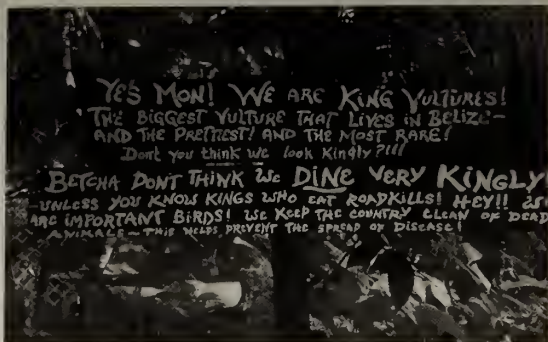 YES MON! WE ARE KING VULTURES!
THE BIGGEST VULTURE THAT LIVES IN BELIZE—
AND THE PRETTIEST! AND THE MOST RARE!
Dont you think we look Kingly?!!!
BETCHA DONT THINK WE DINE VERY KINGLY
—UNLESS YOU KNOW KINGS WHO EAT ROADKILLS! HEY!! WE
ARE IMPORTANT BIRDS! WE KEEP THE COUNTRY CLEAN OF DEAD
ANIMALS — THIS HELPS PREVENT THE SPREAD OF DISEASE!